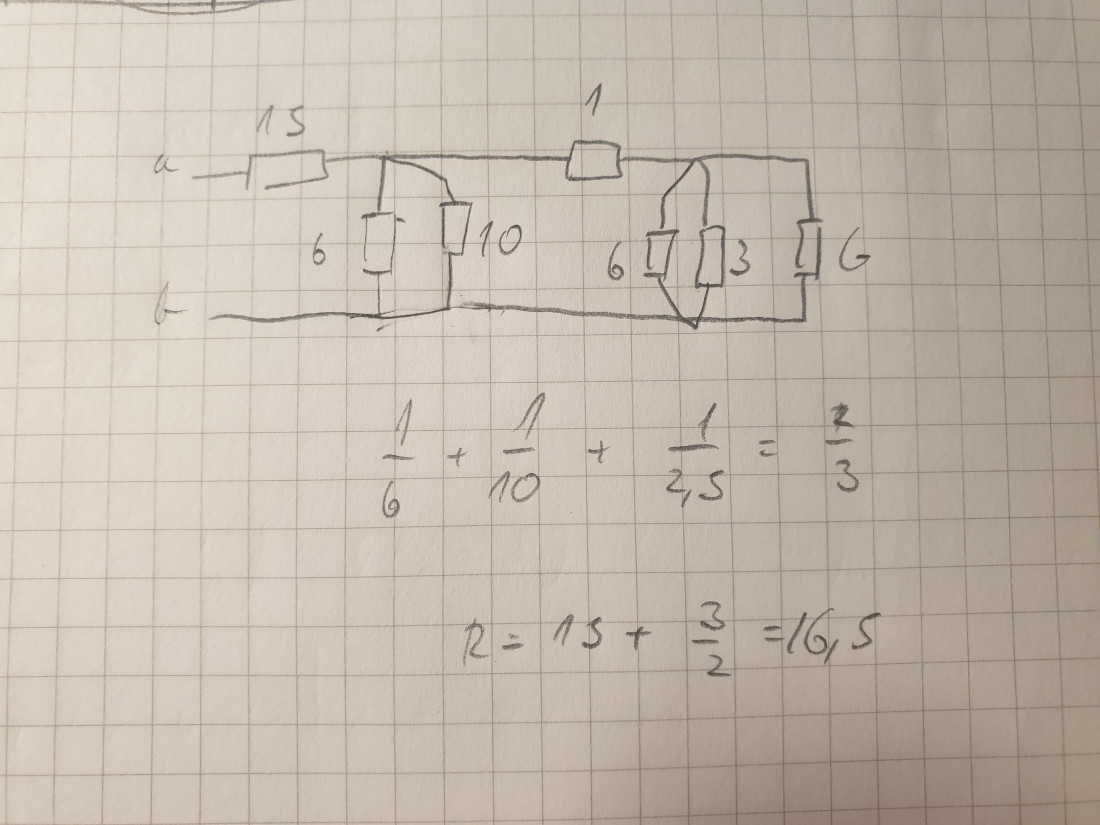 1
15
a
6 10 6 3 6
b
1/6 + 1/10 + 1/2,5 = 2/3
R = 15 + 3/2 = 16,5